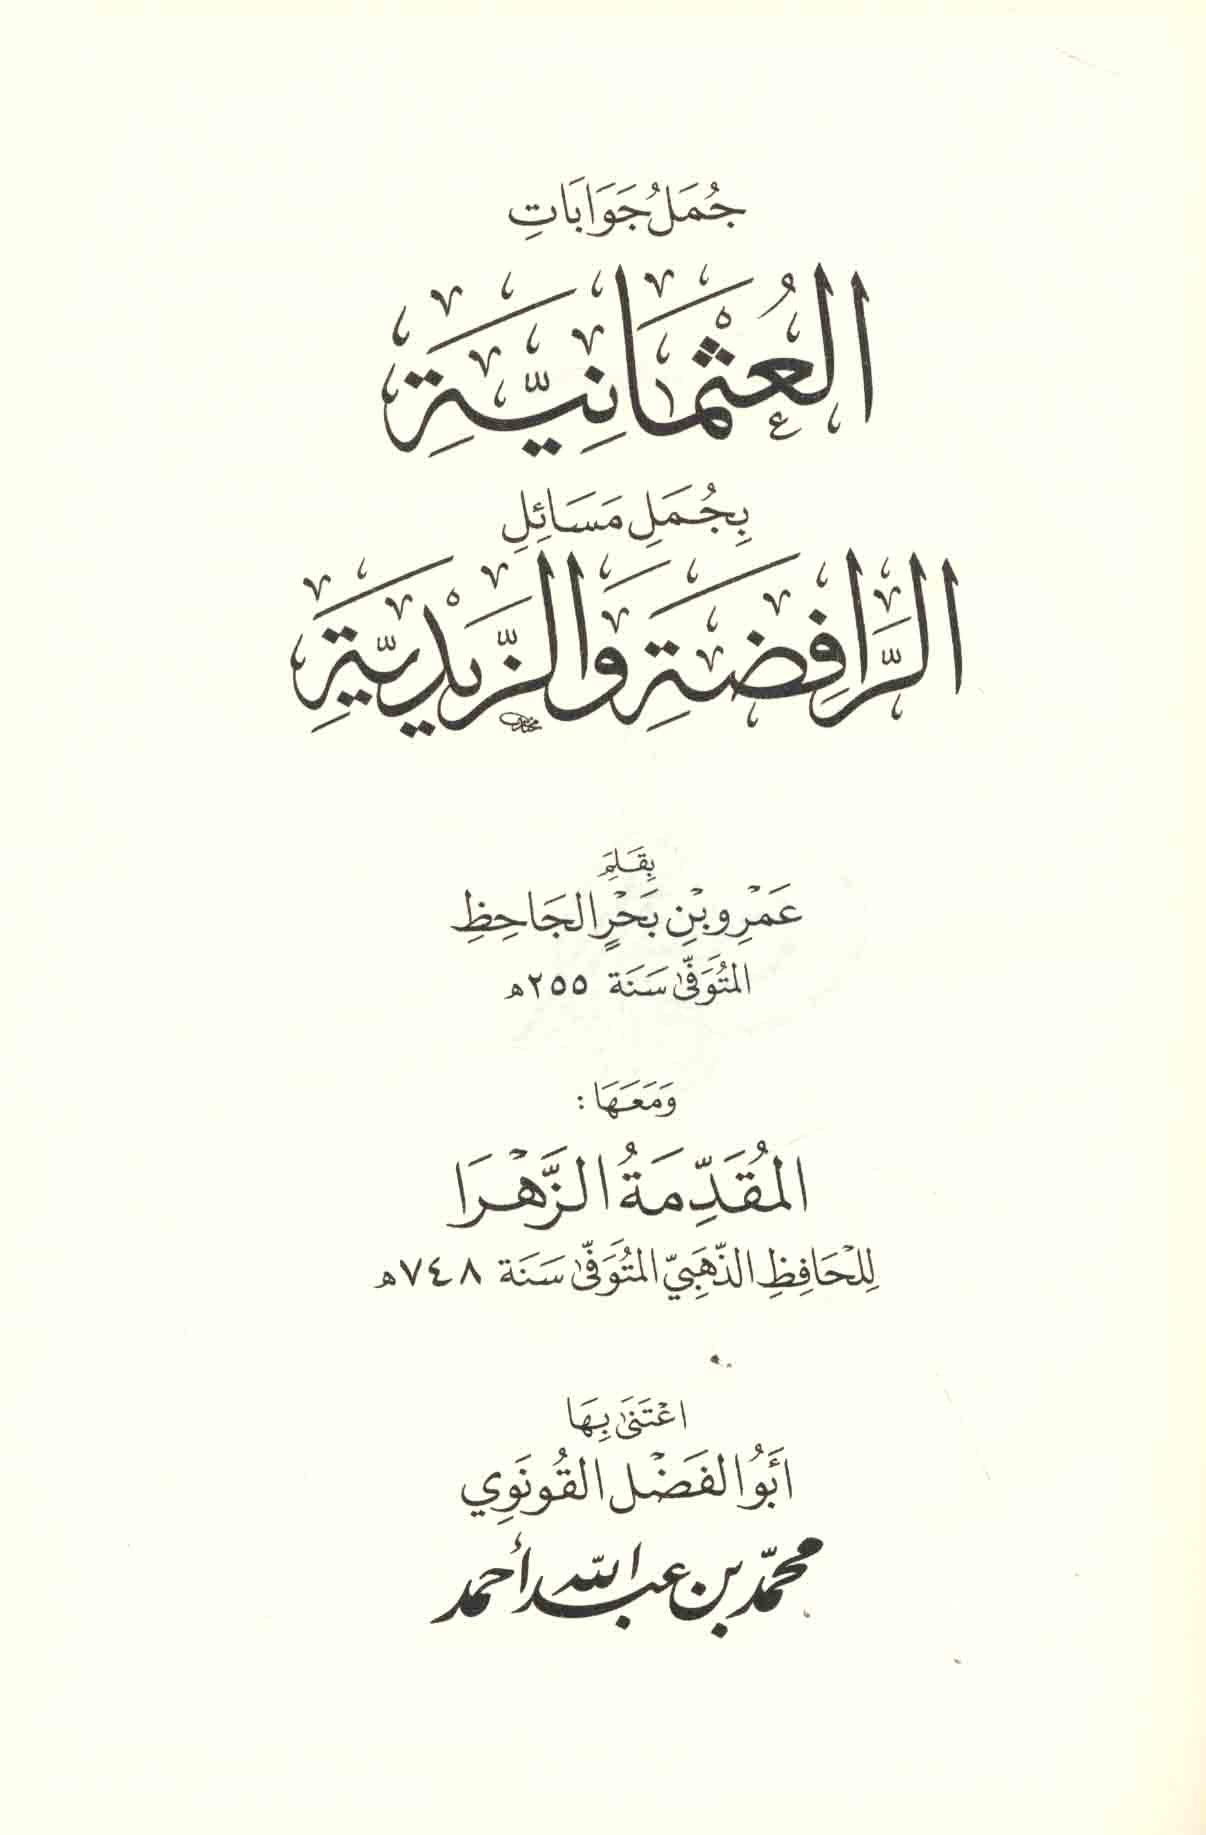 جُمَلُ جَوَابَاتِ
العُثْمَانِيَّةِ
بِجُمَلِ مَسَائِلِ
الرَّافِضَةِ وَالزَّيْدِيَّةِ
بِقَلَمِ
عَمْرِو بْنِ بَحْرٍ الجَاحِظِ
المُتَوَفَّى سَنَة ٢٥٥ه
وَمَعَهَا:
المُقَدِّمَةُ الزَّهْرَا
لِلْحَافِظِ الذَّهَبِيّ المُتَوَفَّى سَنَة ٧٤٨ه
اعْتَنَى بِهَا
أَبُو الفَضْل القُونَوِي
محمّد بن عبد اللّه أحمد